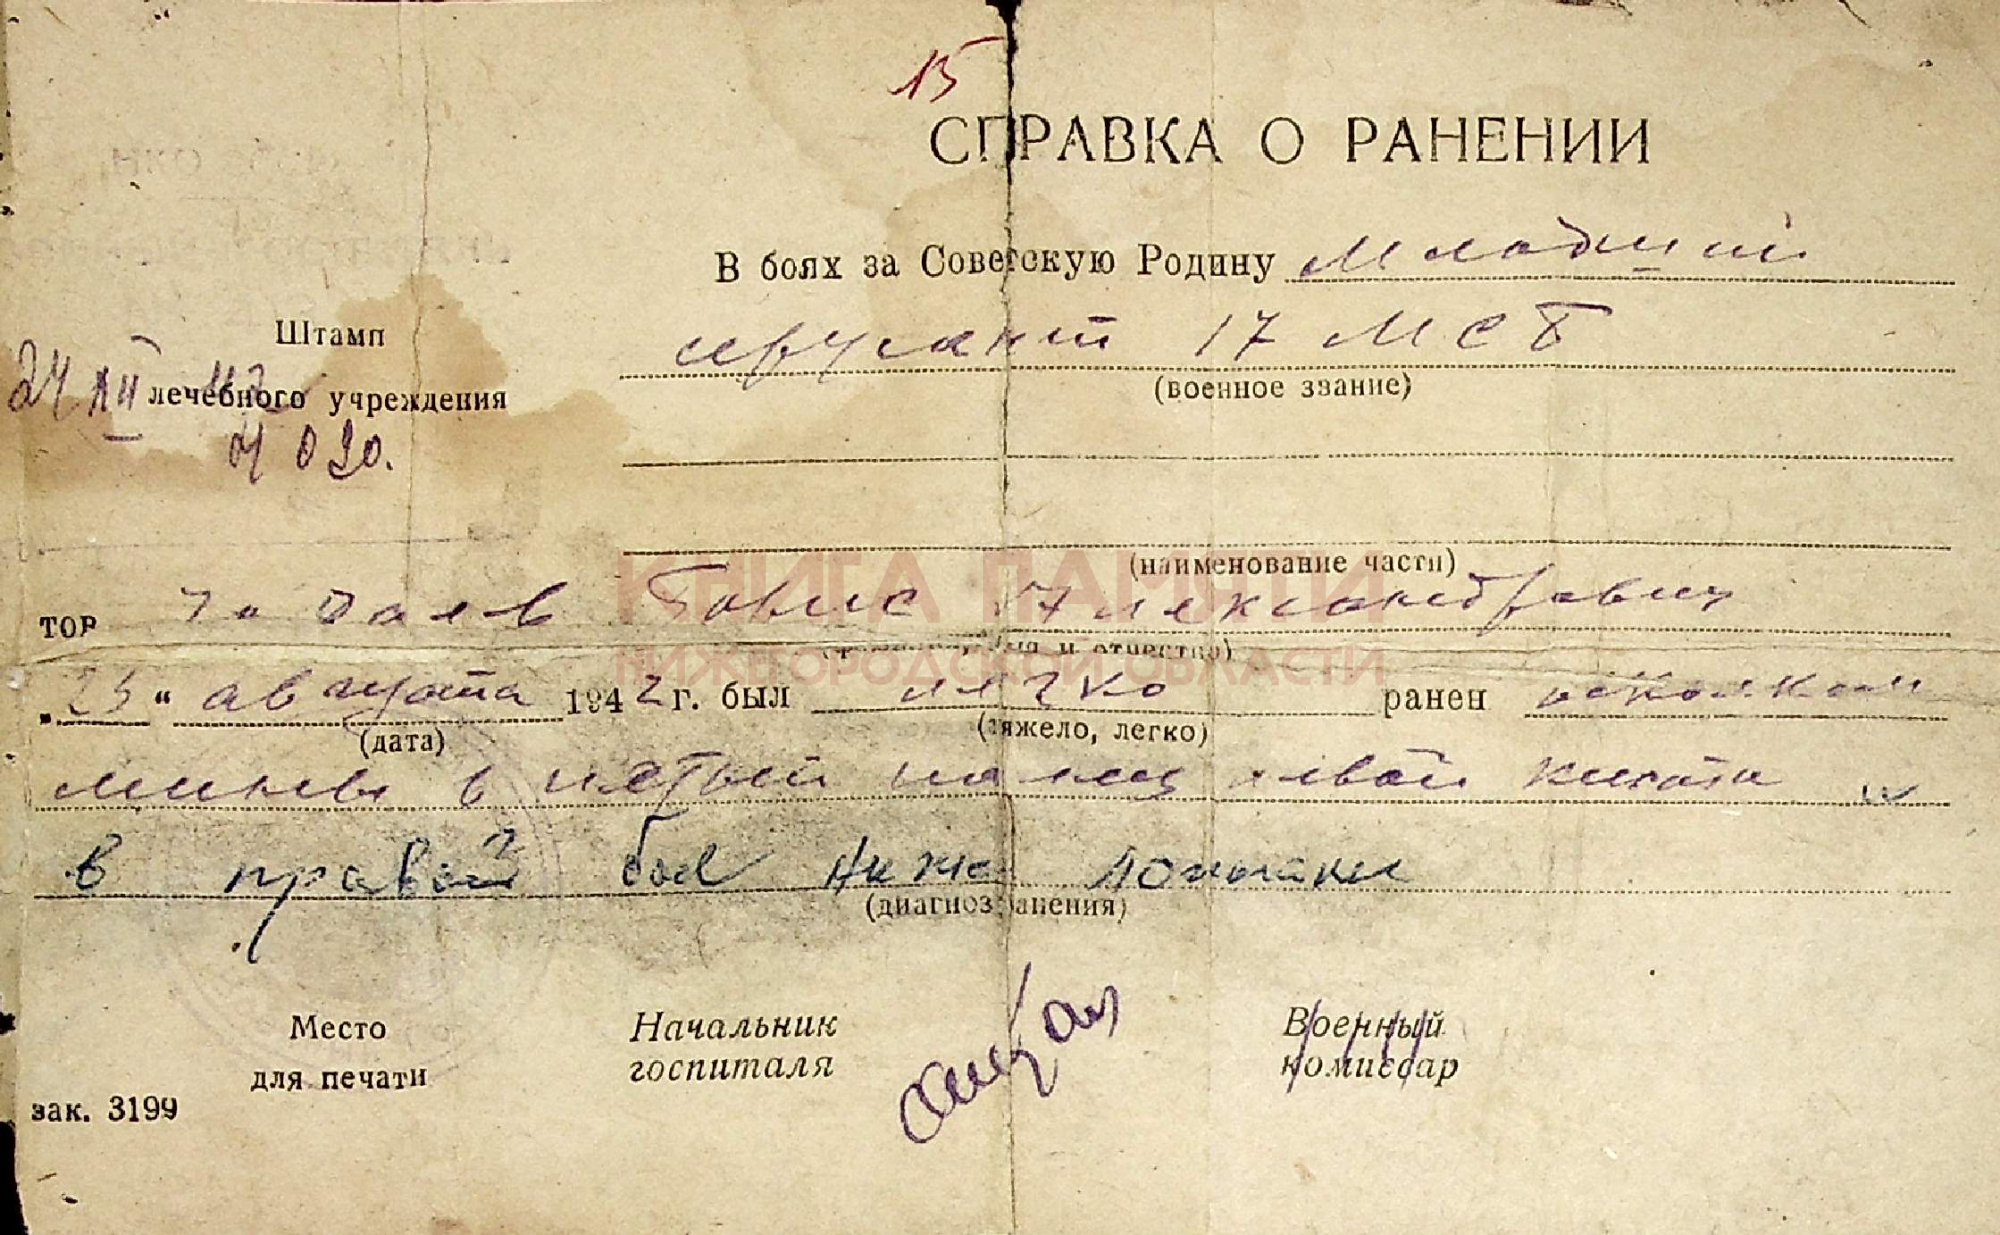 15
СПРАВКА О РАНЕНИИ
В боях за Советскую Родину младший
сержант 17 МСБ
(военное звание)
Штамп
лечебного учреждения
24 XII 42
(наименование части)
КНИГА ПАМЯТИ
тор Борис Александрович
НИЖЕГОРОДСКОЙ ОБЛАСТИ
„23“ августа 1942 г. был легко ранен осколком
(дата) (тяжело, легко)
мины в пятый палец левой кисти и
в правой бок ниже лопатки
(диагноз ранения)
Место
для печати
Начальник
госпиталя
Военный
комиссар
зак. 3199